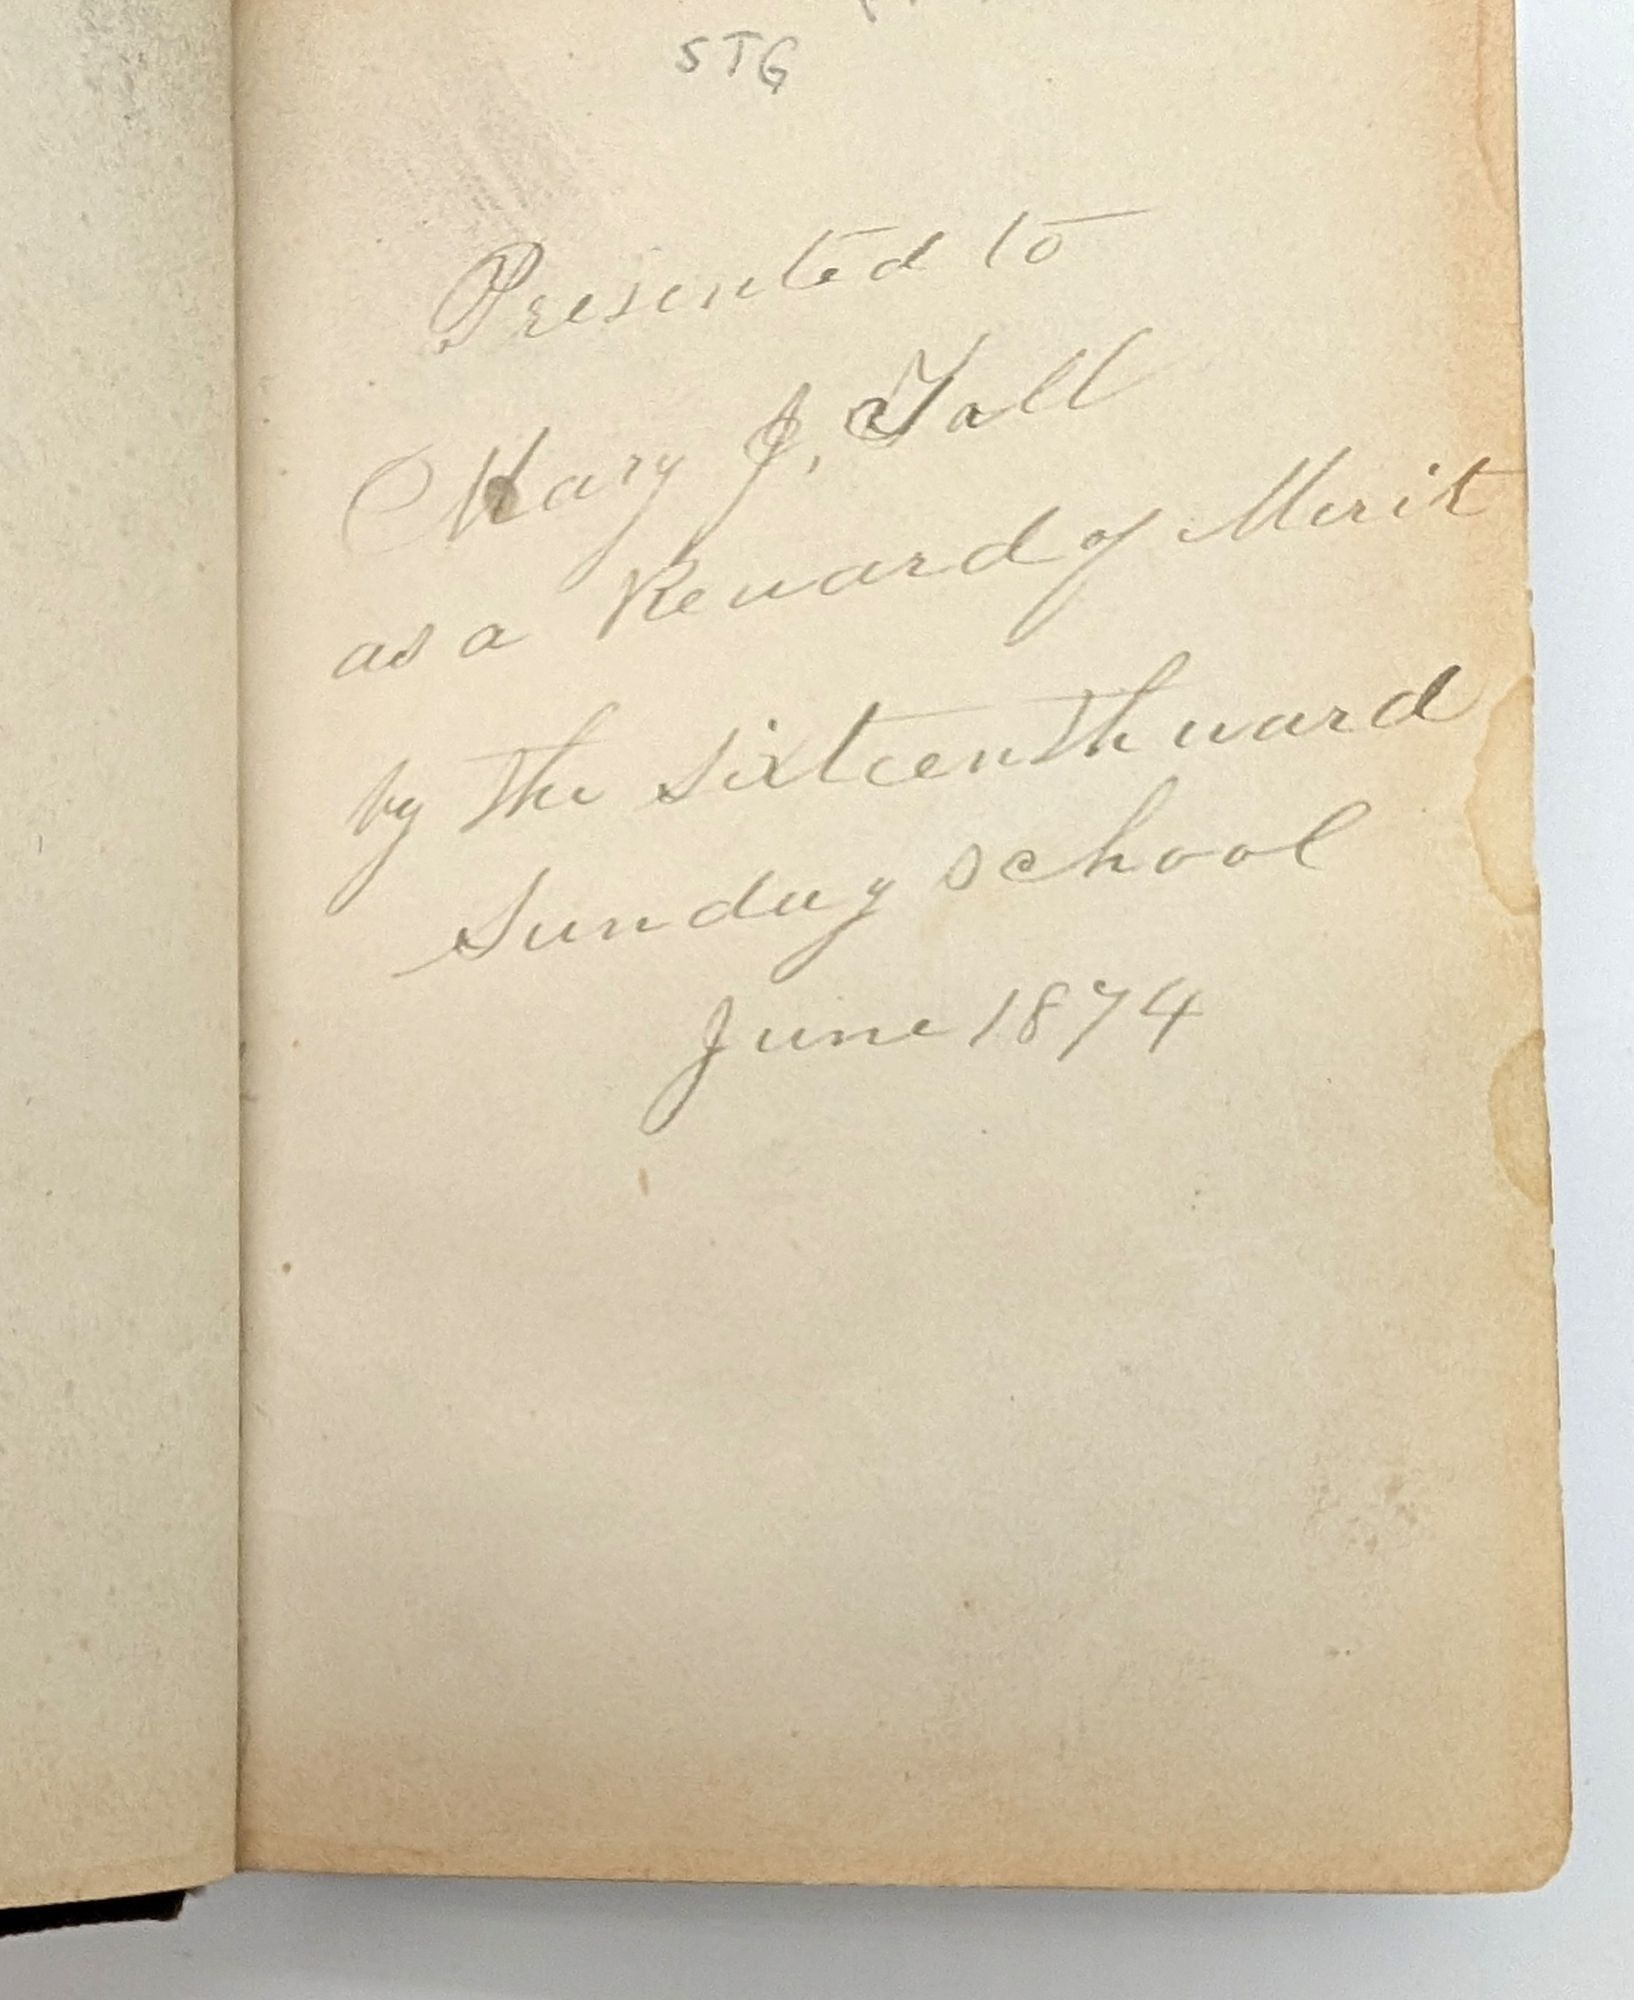 STG
Presented to
Mary J. Tall
as a Reward of Merit
by the sixteenth ward
Sunday school
June 1874